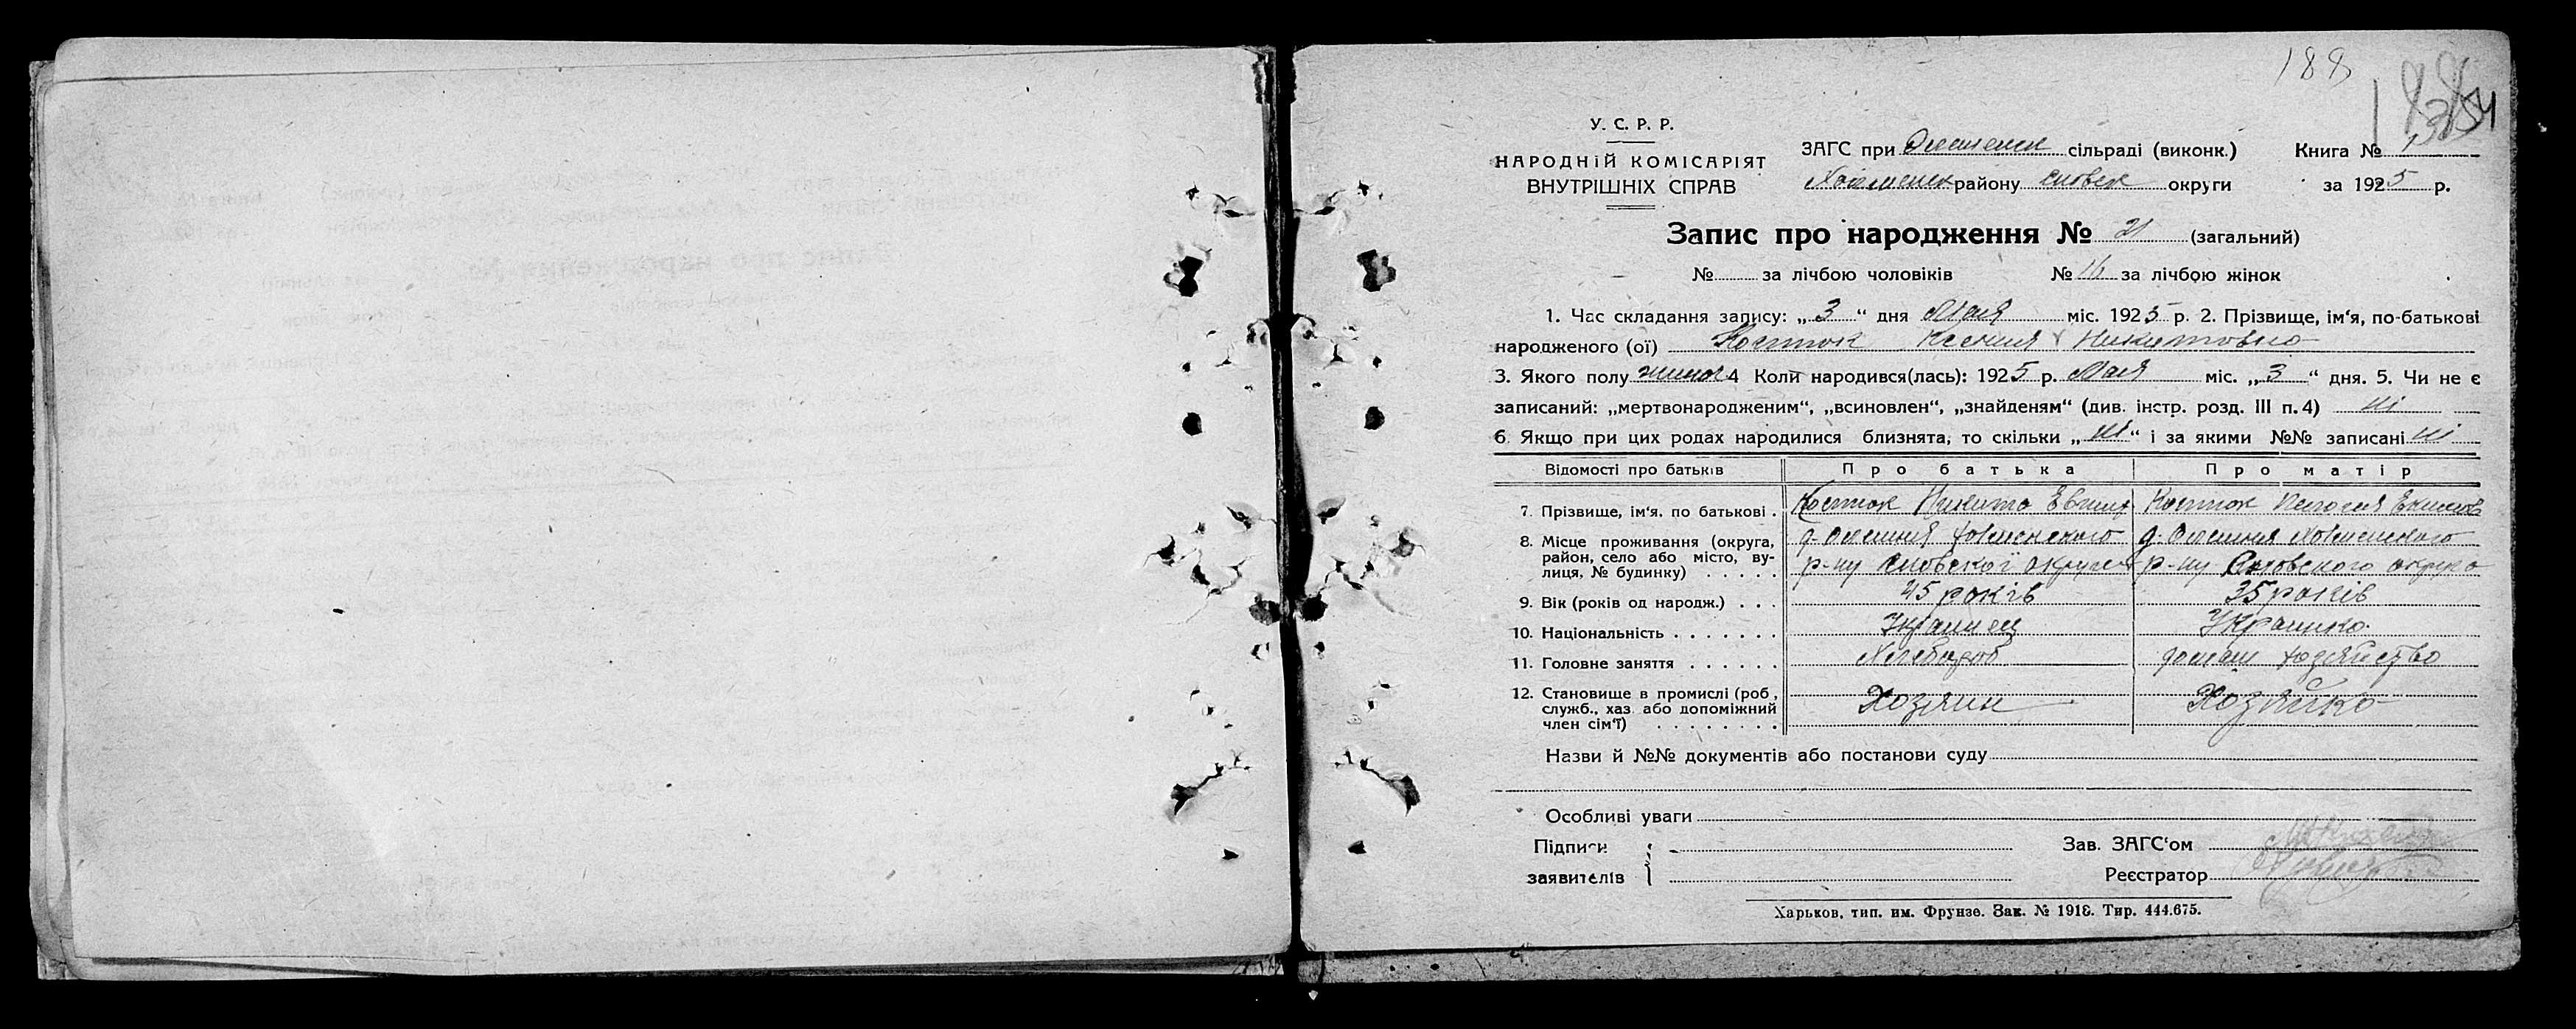 188
У. С. Р. Р.
НАРОДНІЙ КОМІСАРІЯТ
ВНУТРІШНІХ СПРАВ
ЗАГС при сільраді (виконк.) Книга №
району округи за 1925 р.
Запис про народження № 21 (загальний)
№ за лічбою чоловіків № 16 за лічбою жінок
1. Час складання запису: „ 3 “ дня Мая міс. 1925 р. 2. Прізвище, ім‘я, по-батькові
народженого (ої) Костюк Ксения Никитовна
3. Якого полу жиноч 4 Коли народився(лась): 1925 р. Мая міс. „ 3 “ дня. 5. Чи не є
записаний: „мертвонародженим“, „всиновлен“, „знайденям“ (див. інстр. розд. III п. 4) ні
6. Якщо при цих родах народилися близнята, то скільки „ ні “ і за якими №№ записані ні
Відомості про батьків Про батька Про матір
7. Прізвище, ім‘я. по батькові . Костюк Никита Костюк
8. Місце проживання (округа,
район, село або місто, ву-
лиця, № будинку) . . . . . р-ну округи р-ну округа
9. Вік (років од народж.) . . . 45 років 35 років
10. Національність . . . . . . . Украинец Украинка
11. Головне заняття . . . . . . Хлебороб домаш хозяйство
12. Становище в промислі (роб,
служб., хаз. або допоміжний
член сім‘ї) . . . . . . . . Хозяин Хозяйка
Назви й №№ документів або постанови суду
Особливі уваги
Підписи Зав. ЗАГС‘ом
заявителів Реєстратор
Харьков, тип. им. Фрунзе. Зак. № 1918. Тир. 444.675.